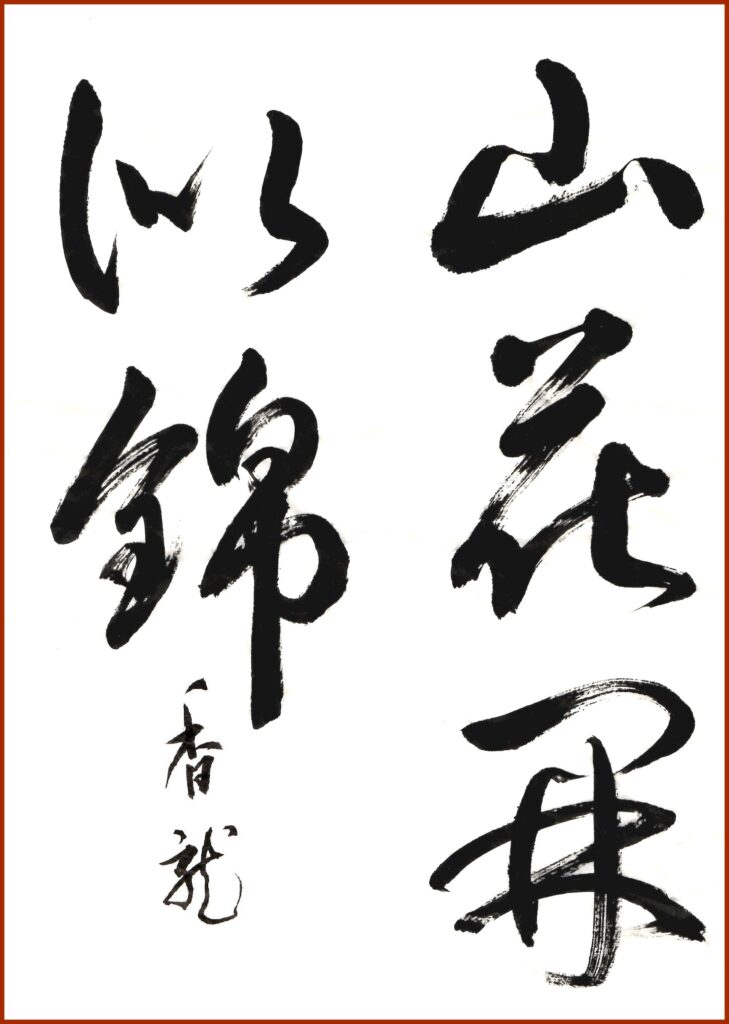 山花開
似錦
香龍